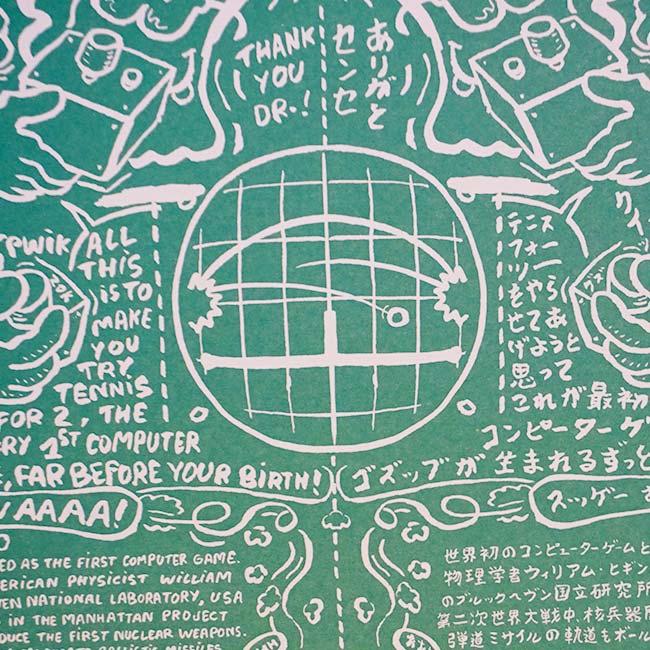 THANK
YOU
DR.!
ありがと
センセ
ALL
THIS
iS TO
MAKE
YOU
TRY
TENNIS
FOR 2, THE
1ST COMPUTER
FAR BEFORE YOUR BiRTH!
AAAA!
テニス
フォー
ツー
をやら
せてあ
げようと
思って
これが最初
コンピーターゲ
ゴズップが生まれるずっと
スッゲー
ED AS THE FIRST COMPUTER GAME.
ERICAN PHYSICIST WILLIAM
EN NATIONAL LABORATORY, USA
IN THE MANHATTAN PROJECT
DUCE THE FIRST NUCLEAR WEAPONS.
BALLISTIC MISSILES
世界初のコンピューターゲームと
物理学者ウィリアム・ヒギン
のブルックヘヴン国立研究所
第二次世界大戦中、核兵器
弾道ミサイルの軌道をボール